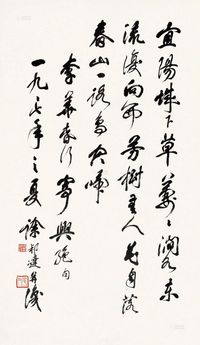 宜陽城下草萋〻澗水東
流復向西芳樹無人花自落
春山一路鳥空啼
李華春行寄興絶句
一九七年之夏